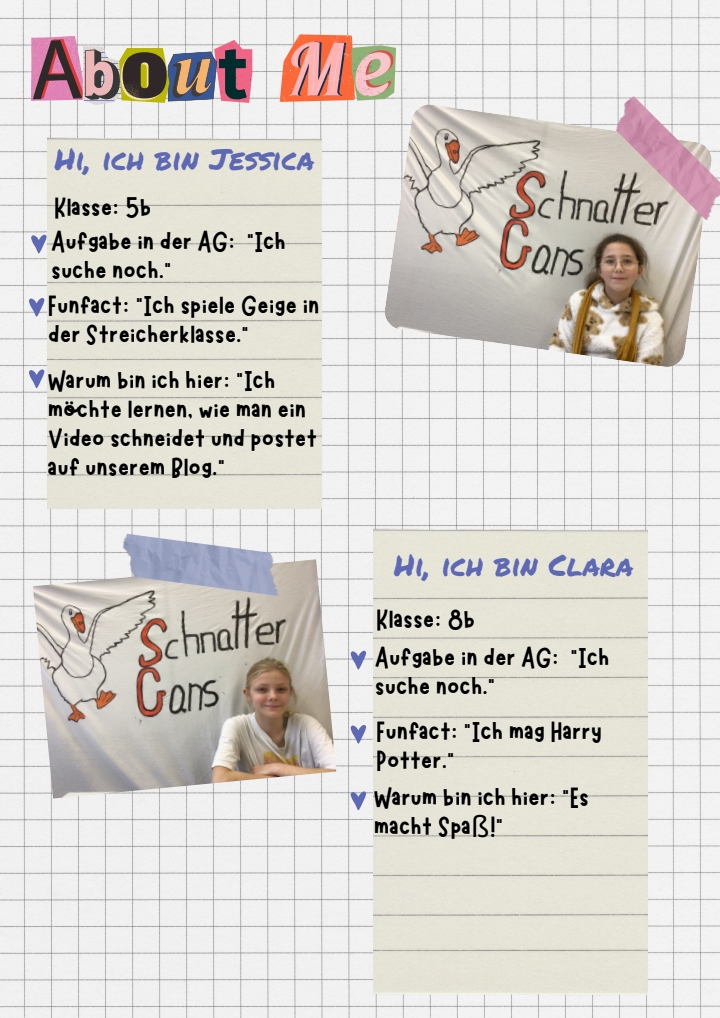 About Me
Hi, ich bin Jessica
Klasse: 5b
Aufgabe in der AG: "Ich
suche noch."
Funfact: "Ich spiele Geige in
der Streicherklasse."
Warum bin ich hier: "Ich
möchte lernen, wie man ein
Video schneidet und postet
auf unserem Blog."
Schnatter
Gans
Schnatter
Gans
Hi, ich bin Clara
Klasse: 8b
Aufgabe in der AG: "Ich
suche noch."
Funfact: "Ich mag Harry
Potter."
Warum bin ich hier: "Es
macht Spaß!"